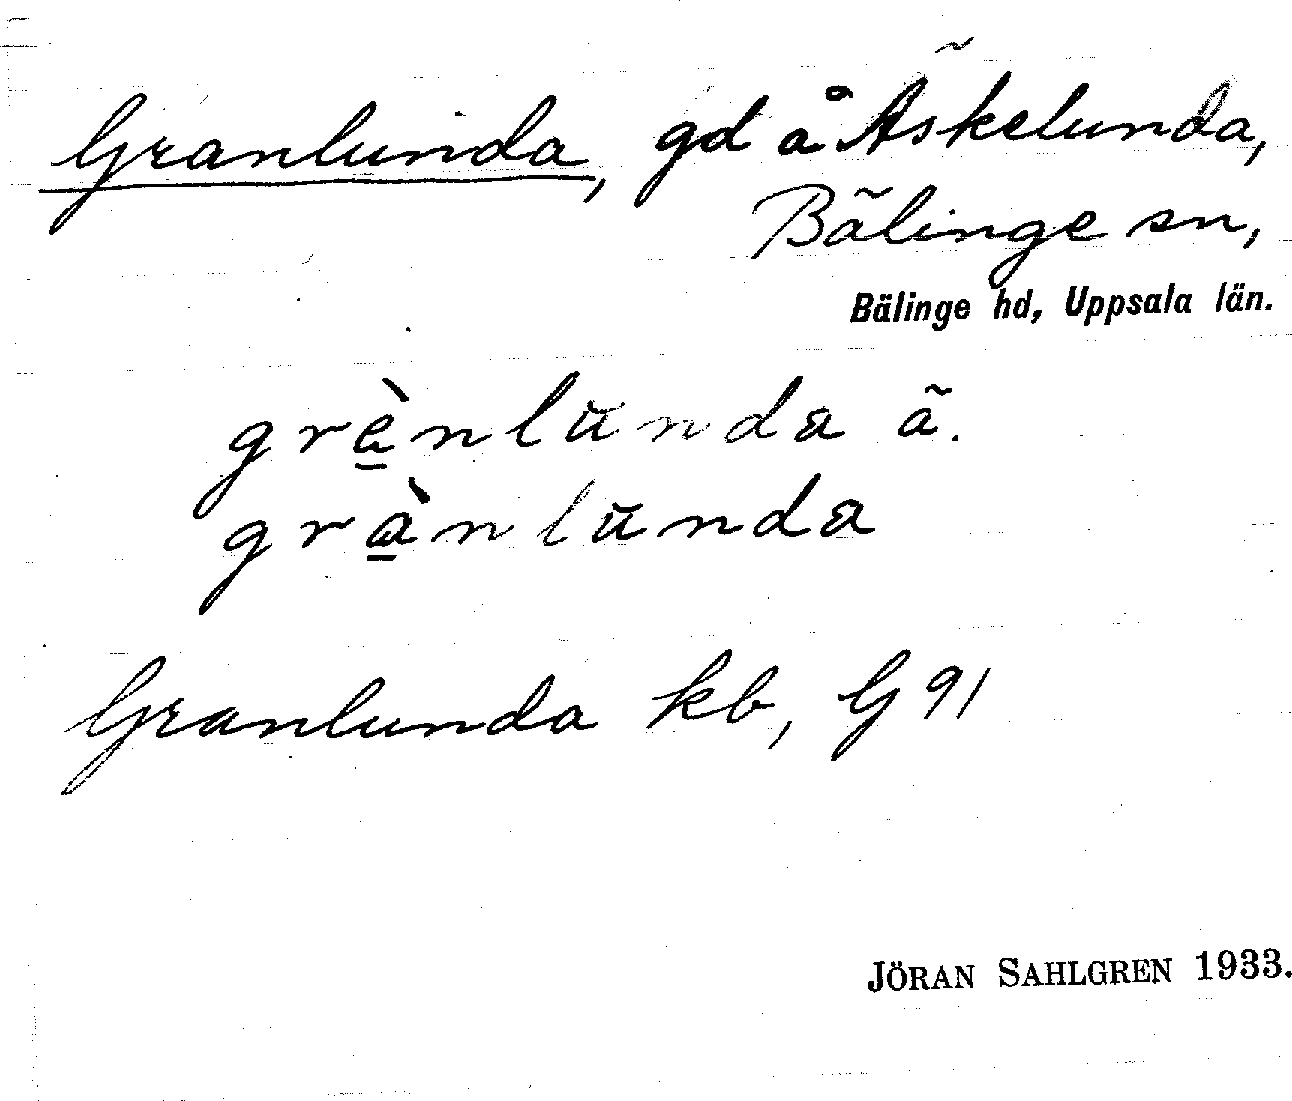 Granlunda, gd å Äskelunda,
Bälinge sn,
Bälinge hd, Uppsala län.
grà̱nlŭnda ã.
grà̱nlŭnda
Granlunda kb, G 91
JÖRAN SAHLGREN 1933.